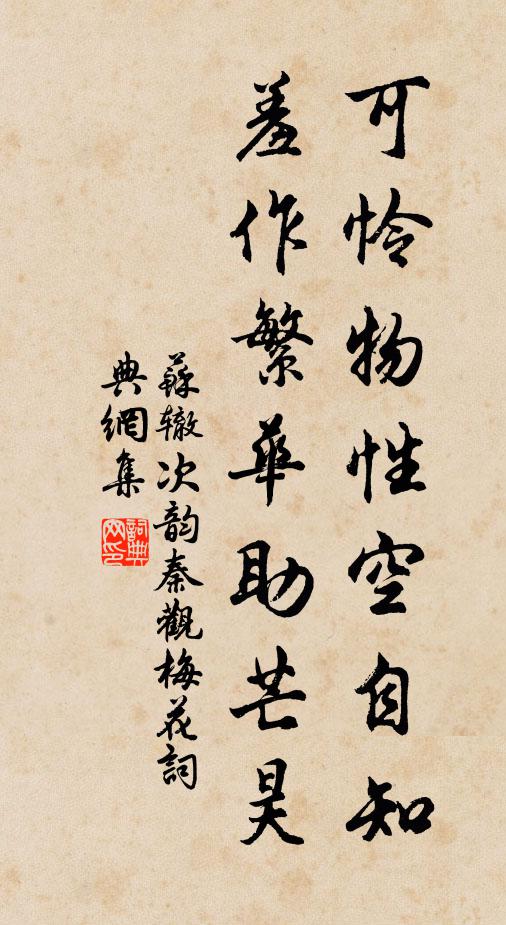 可怜物性空自知
羞作繁華助芒昊
蘇辙次韵秦觀梅花詞
典網集
詞典网印